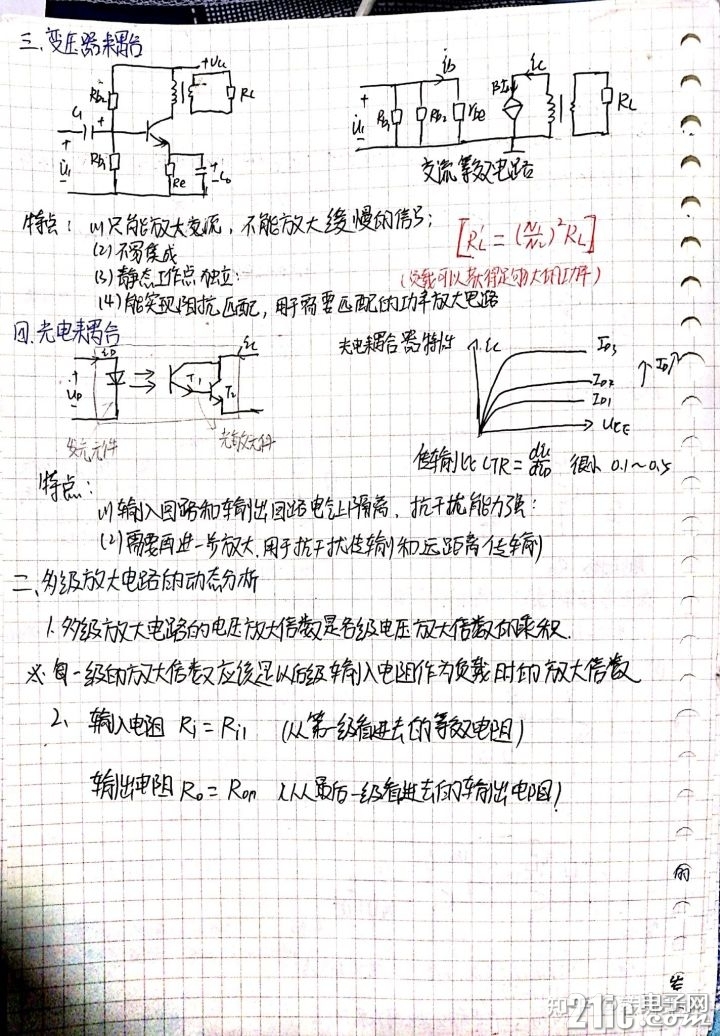 三、变压器耦合
+Vcc
Rb2
RL
C1
+
U̇i
-
Rb1
Re
+
Ce
ib
ic
+
U̇i
-
Rb1
Rb2
rbe
βIb
RL
交流等效电路
特点：(1)只能放大交流，不能放大缓慢的信号；
(2)不易集成
(3)静态工作点独立；
(4)能实现阻抗匹配，用于需要匹配的功率放大电路
[RL' = (N1/N2)² RL]
(负载可以获得足够大的功率)
四、光电耦合
iD
+
UD
-
T1
T2
ic
发光元件
光敏元件
光电耦合器特性
ic
ID3
ID2
ID1
ID
UCE
传输比 CTR = diC/diD 很小 0.1～0.5
特点：
(1)输入回路和输出回路电气上隔离，抗干扰能力强；
(2)需要再进一步放大,用于抗干扰传输和远距离传输
二、多级放大电路的动态分析
1.多级放大电路的电压放大倍数是各级电压放大倍数的乘积.
※每一级的放大倍数应该是以后级输入电阻作为负载时的放大倍数
2、输入电阻 Ri = Ri1 (从第一级看进去的等效电阻)
输出电阻 Ro = Ron (从最后一级看进去的输出电阻)
21ic电子网
.com